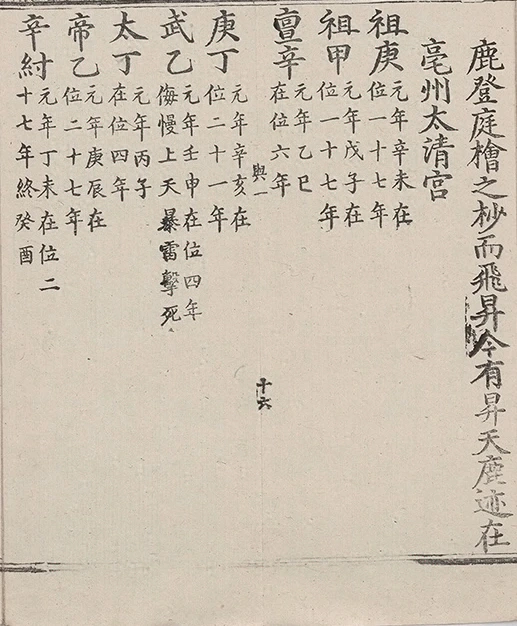 鹿登庭檜之杪而飛昇今有昇天鹿迹在
亳州太清宫
祖庚元年辛未在位一十七年
祖甲元年戊子在位一十七年
亶辛元年乙巳在位六年
與一
十六
庚丁元年辛亥在位二十一年
武乙元年壬申在位四年侮慢上天暴雷擊死
太丁元年丙子在位四年
帝乙元年庚辰在位二十七年
辛紂元年丁未在位二十七年終癸酉